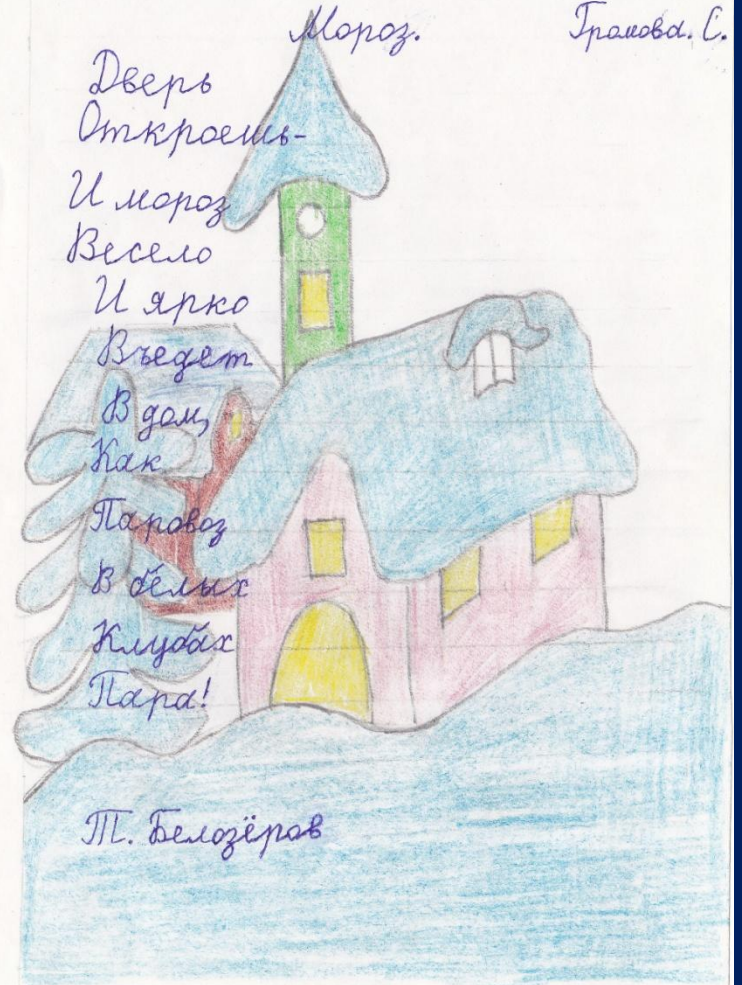 Мороз. Громова. С.
Дверь
Откроешь-
И мороз
Весело
И ярко
Въедет
В дом,
Как
Паровоз
В белых
Клубах
Пара!
Т. Белозёров